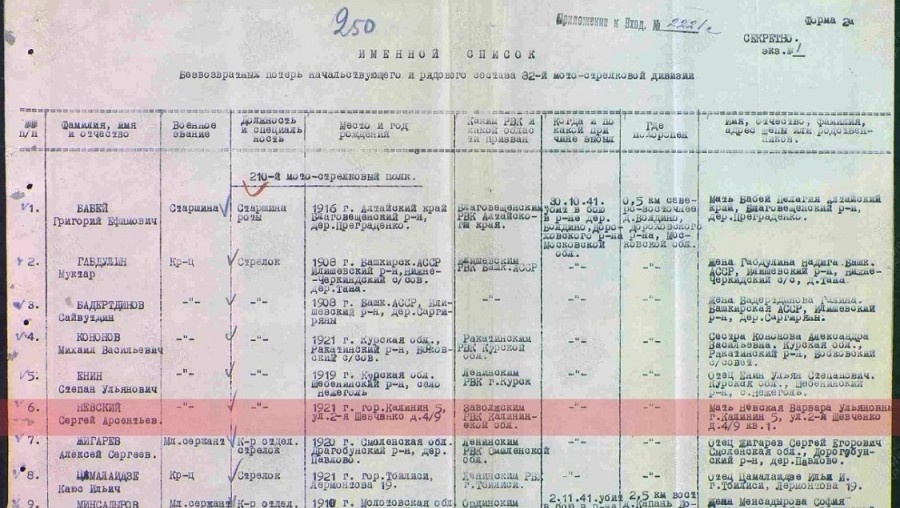 250
Приложение к Вход. № 2221с
Форма 2а
СЕКРЕТНО.
экз.№1
ИМЕННОЙ СПИСОК
Безвозвратных потерь начальствующего и рядового состава 82-й мото-стрелковой дивизии
№№ п/п
Фамилия, имя и отчество
Военное звание
Должность и специальность
Место и год рождения
Каким РВК и какой области призван
Когда и по какой причине выбыл
Где похоронен
Имя, отчество, фамилия, адрес жены или родственников.
210-й мото-стрелковый полк.
1. БАБЕЙ Старшина Старшина 1916 г. Алтайский край Благовещенским 30.10.41. 0,5 км северо-восточнее Мать Бабей Пелагия Алтайский
Григорий Ефимович роты Благовещенский р-н, РВК Алтайского края. убит в бою в р-не дер. край, Благовещенский р-н,
дер.Преграденко. Московской обл. дер.Преграденко.
2. ГАБДУЛИН Кр-ц Стрелок 1908 г. Башкирск.АССР Илишевским Жена Габдулина Надига Башк.
Муктар Илишевский р-н, РВК Башк.АССР АССР, Илишевский р-н,
с/сов. дер.Тана. с/с, д.Тана.
3. БАДЕРТДИНОВ -"- -"- 1908 г. Башк.АССР, Илишевский -"- -"- -"- Жена Бадертдинова Галина.
Сайвутдин р-н, дер. Башкирская АССР, Илишевский р-н,
4. КОНОНОВ -"- -"- 1921 г. Курская обл., Ракатинским -"- -"- Сестра Кононова Александра
Михаил Васильевич Ракатинский р-н, РВК Курской обл. Васильевна, Курская обл.,
с/сов. Ракатинский р-н, с/совет.
5. ЕНИН -"- -"- 1919 г. Курская обл. Ленинским -"- -"- Отец Енин Ульян Степанович.
Степан Ульянович р-н, село РВК г.Курск Курская обл., р-н,
6. НЕВСКИЙ -"- -"- 1921 г. гор.Калинин 5, Заволжским -"- -"- Мать Невская Варвара Ульяновна
Сергей Арсентьев. ул.2-я Шевченко д.4/9 РВК Калининской обл. г.Калинин 5, ул.2-я Шевченко
д.4/9 кв.1.
7. ЖИГАРЕВ Мл.сержант К-р отдел. 1920 г. Смоленская обл. Ленинским -"- -"- Отец Жигарев Сергей Егорович
Алексей Сергеев. стрелок р-н, дер. РВК Смоленской обл. Смоленская обл.,
Павлово. р-н, дер.Павлово.
8. ЦАМАЛАИДЗЕ Кр-ц Стрелок 1921 г. гор.Тбилиси, Ленинским РВК -"- -"- Отец Цамалаидзе Илья И.
Каюс Ильич Лермонтова 19. г.Тбилиси. г.Тбилиси, Лермонтова 19.
9. Мл.сержант К-р отдел. Молотовская обл. 2.11.41.убит 2,5 км вост. Жена София